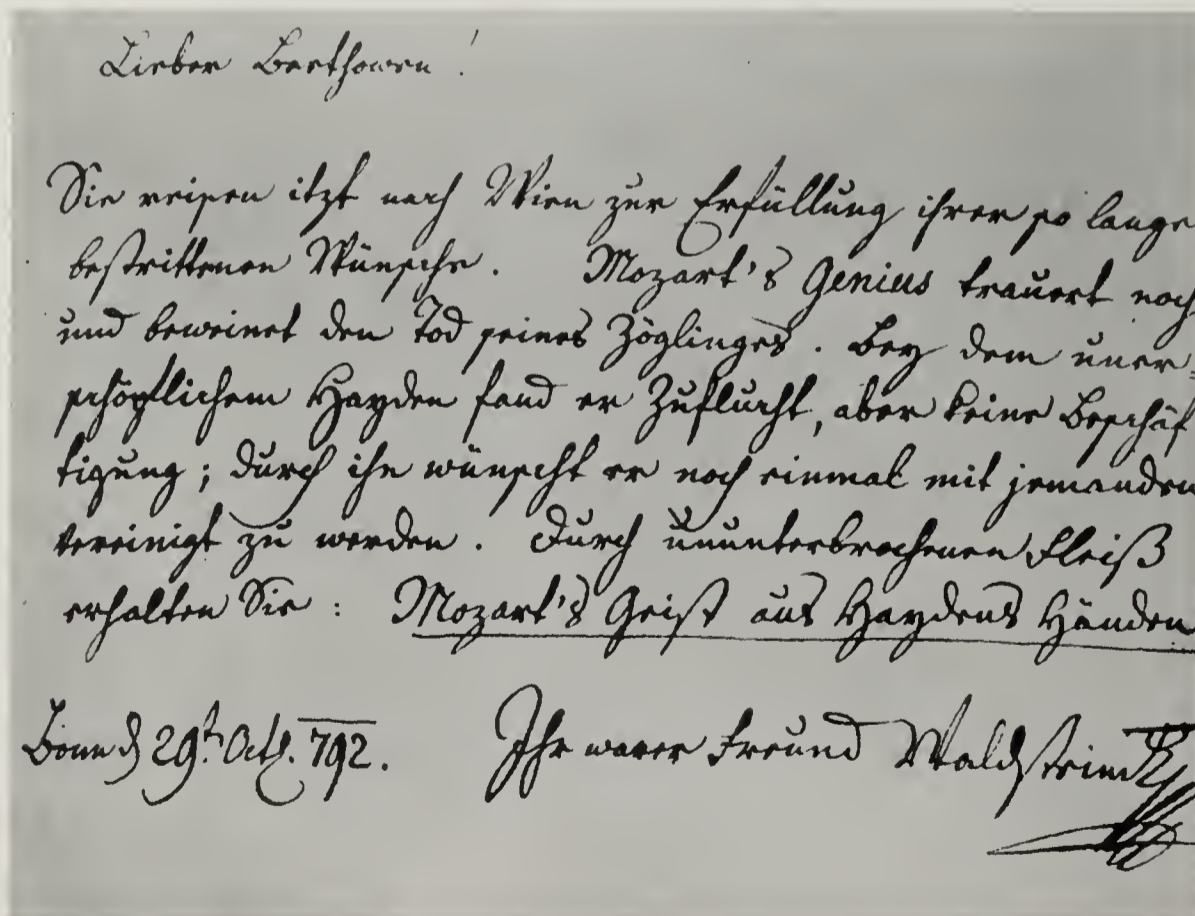 Lieber Beethowen!
Sie reisen itzt nach Wien zur Erfüllung ihrer so lange
bestrittenen Wünsche. Mozart's Genius trauert noch
und beweinet den Tod seines Zöglinges. Bey dem uner=
schöpflichem Hayden fand er Zuflucht, aber keine Beschäf
tigung; durch ihn wünscht er noch einmal mit jemanden
vereinigt zu werden. Durch ununterbrochenen Fleiß
erhalten Sie: Mozart's Geist aus Haydens Händen
Bonn d 29t. Oct. 792. Ihr warer Freund Waldstein